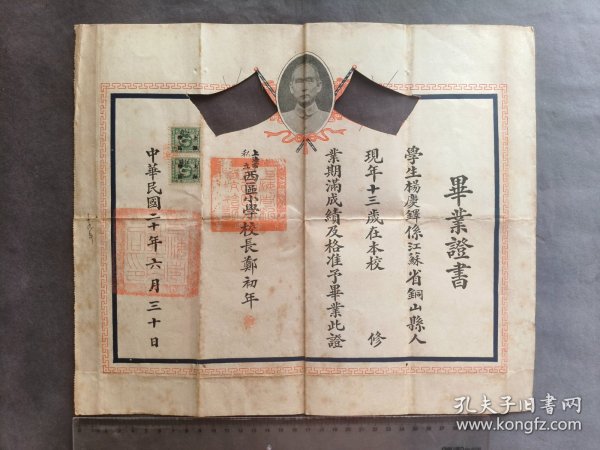 畢業證書
學生楊慶鐸係江蘇省銅山縣人
現年十三歲在本校 修
業期滿成績及格准予畢業此證
上海市
私立西區小學校長鄭初年
中華民國二十年六月三十日
孔夫子旧书网
www.kongfz.com